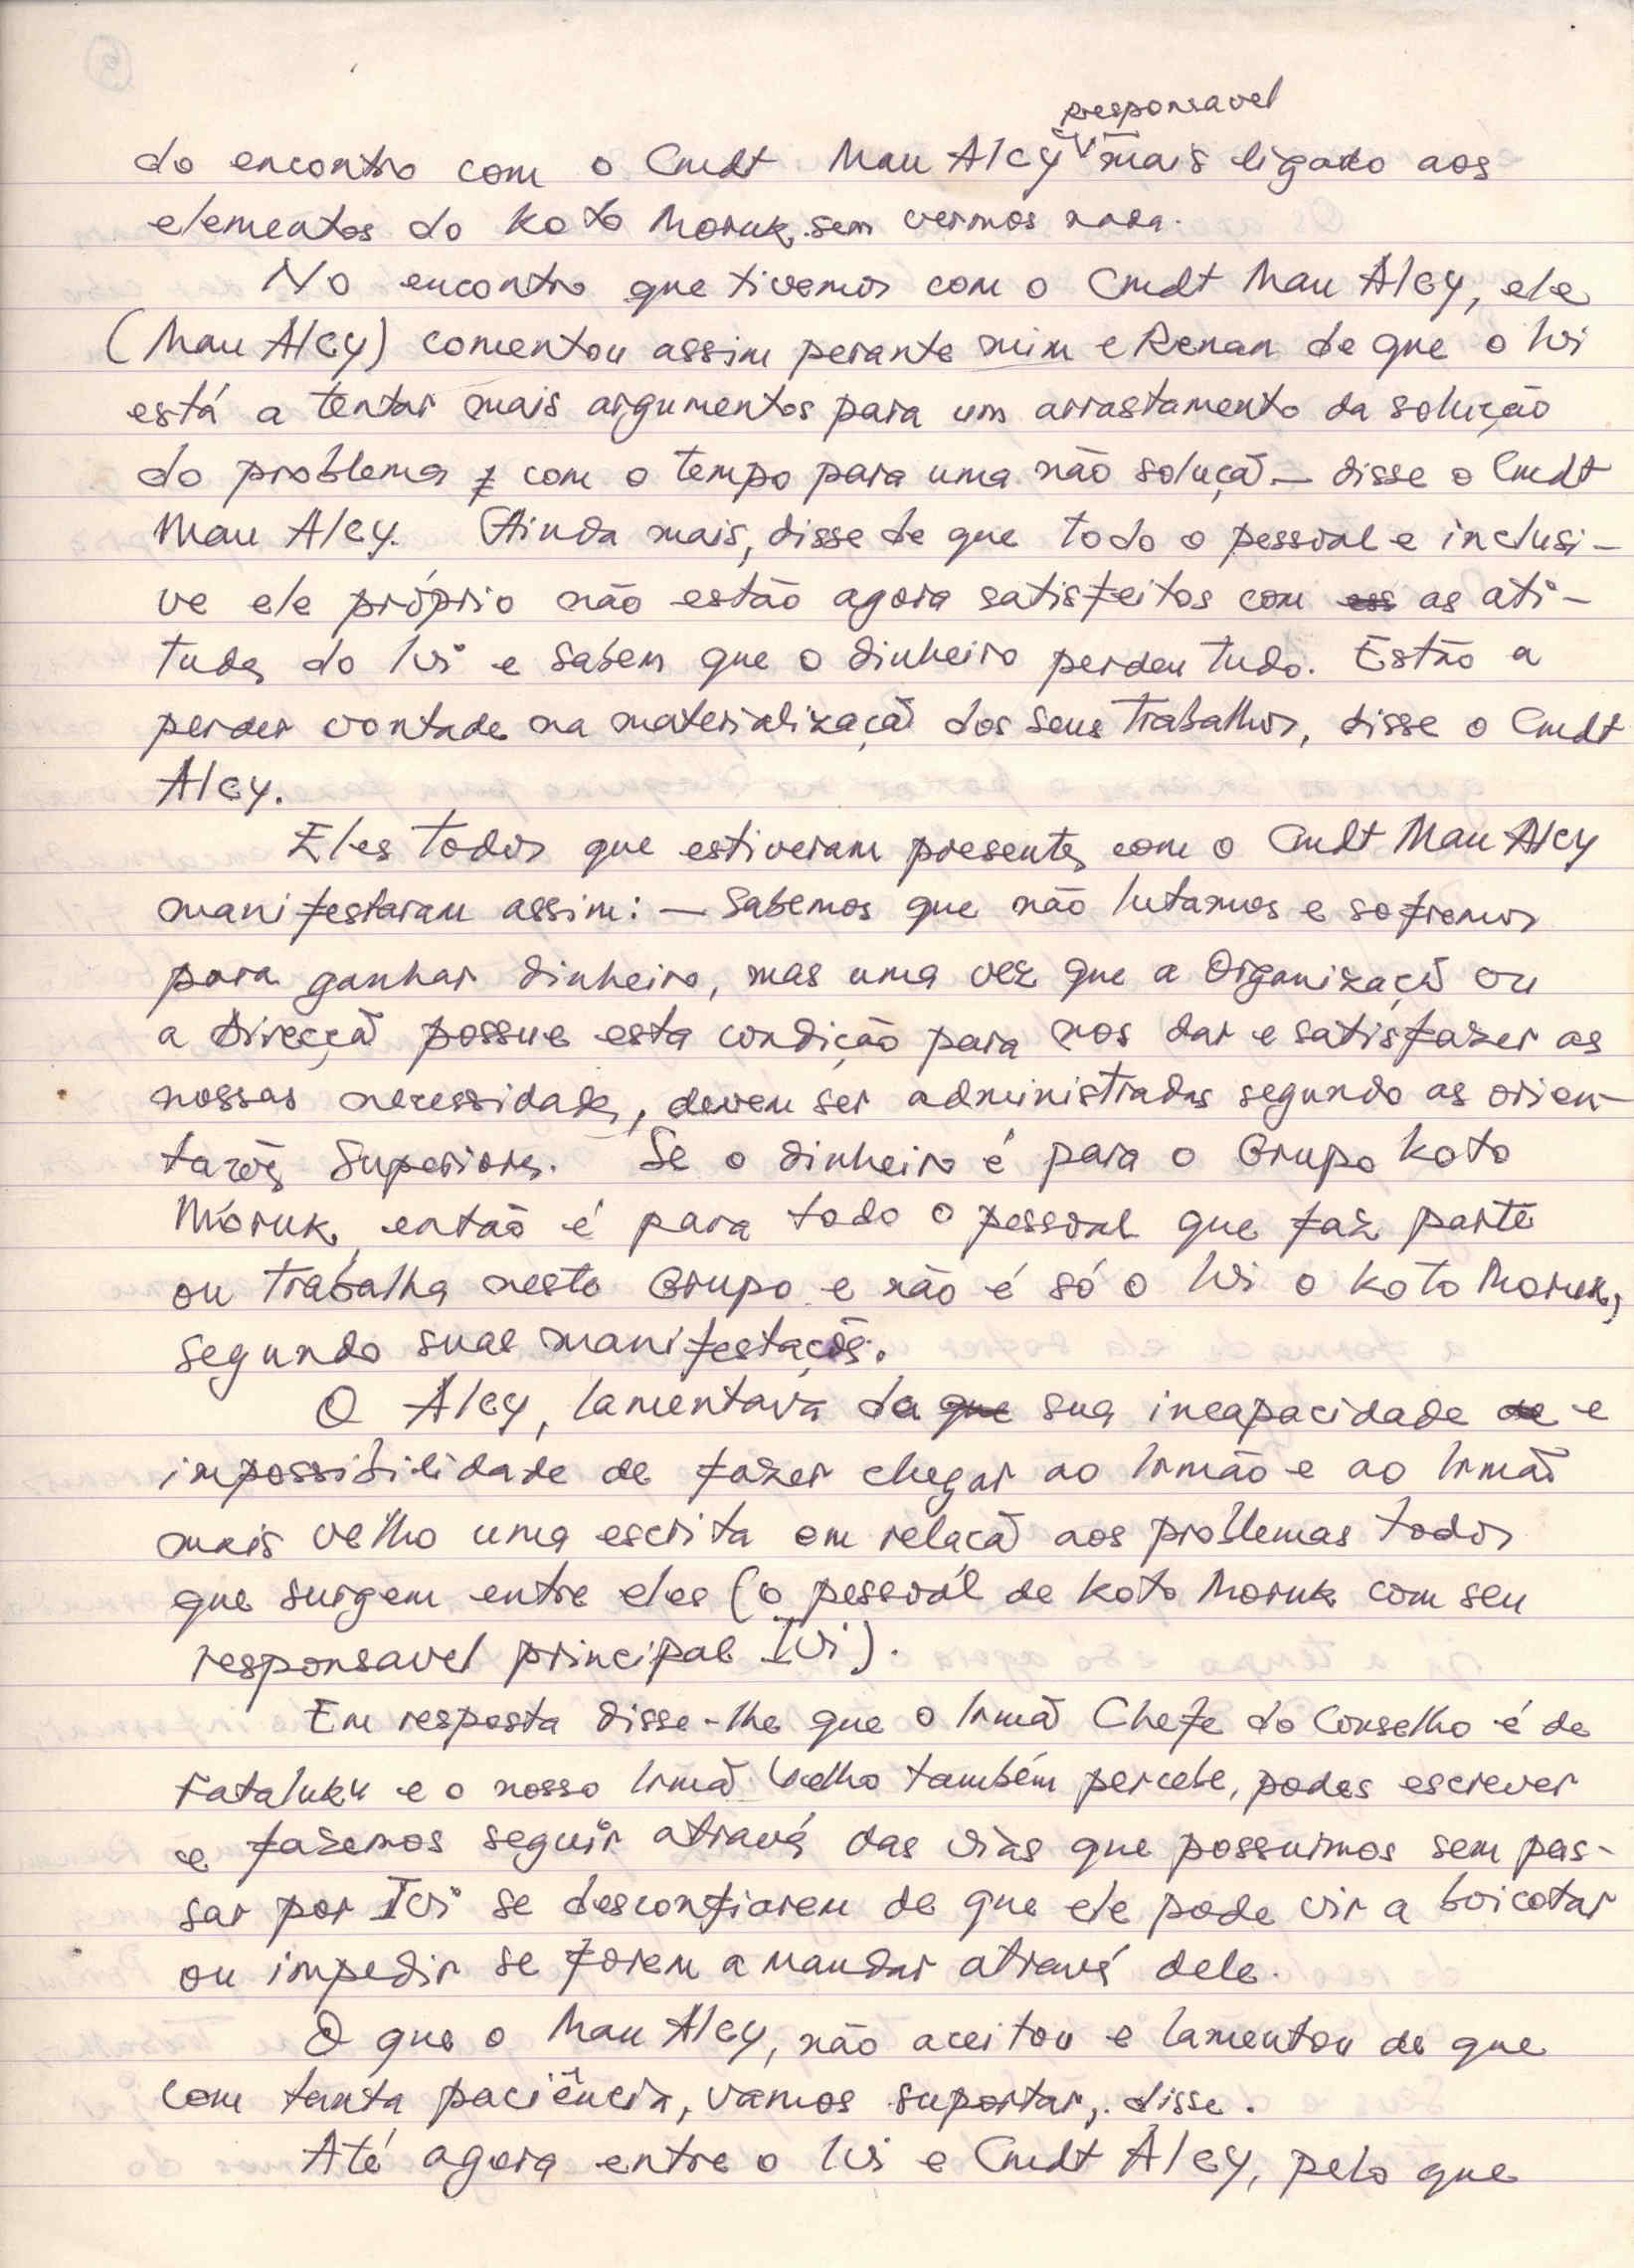 responsavel
do encontro com o Cmdt Mau Alcy mais ligado aos
elementos do Koto Moruk. sem vermos nada.
No encontro que tivemos com o Cmdt Mau Alcy, ele
(Mau Alcy) comentou assim perante mim e Renan de que o Ivi
está a tentar mais argumentos para um arrastamento da solução
do problema e com o tempo para uma não solução — disse o Cmdt
Mau Alcy. Ainda mais, disse de que todo o pessoal e inclusi-
ve ele próprio não estão agora satisfeitos com as ati-
tudes do Ivi e sabem que o dinheiro perdeu tudo. Estão a
perder vontade na materialização dos seus trabalhos, disse o Cmdt
Alcy.
Eles todos que estiveram presentes com o Cmdt Mau Alcy
manifestaram assim: — Sabemos que não lutamos e sofremos
para ganhar dinheiro, mas uma vez que a Organização ou
a Direcção possue esta condição para nos dar e satisfazer as
nossas necessidades, devem ser administradas segundo as orien-
tações Superiores. Se o dinheiro é para o Grupo Koto
Moruk, então é para todo o pessoal que faz parte
ou trabalha neste Grupo e não é só o Ivi o Koto Moruk,
segundo suas manifestações.
O Alcy, lamentava da sua incapacidade e
impossibilidade de fazer chegar ao Irmão e ao Irmão
mais velho uma escrita em relação aos problemas todos
que surgem entre eles (o pessoál de Koto Moruk com seu
responsavel principal Ivi).
Em resposta disse-lhe que o Irmão Chefe do Conselho é de
Fataluku e o nosso Irmão Velho também percebe, podes escrever
e fazemos seguir através das vias que possuimos sem pas-
sar por Ivi se desconfiarem de que ele pode vir a boicotar
ou impedir se forem a mandar através dele.
O que o Mau Alcy, não aceitou e lamentou de que
com tanta paciência, vamos suportar, disse.
Até agora entre o Ivi e Cmdt Alcy, pelo que